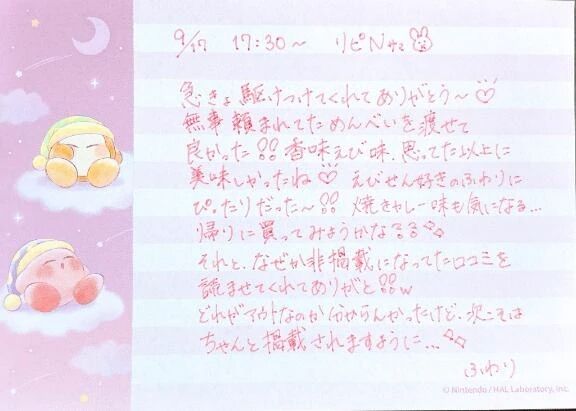 9/17 17:30～ リピNサマ
急きょ駆けつけてくれてありがとう～♡
無事頼まれてためんべいを渡せて
良かった!! 香味えび味、思ってた以上に
美味しかったね♡ えびせん好きのふわりに
ぴったりだった～!! 焼きカレー味も気になる...
帰りに買ってみようかなるる
それと、なぜか非掲載になってた口コミを
読ませてくれてありがと!!w
どれがアウトなのか分からんかったけど、次こそは
ちゃんと掲載されますように...
ふわり
© Nintendo / HAL Laboratory, Inc.